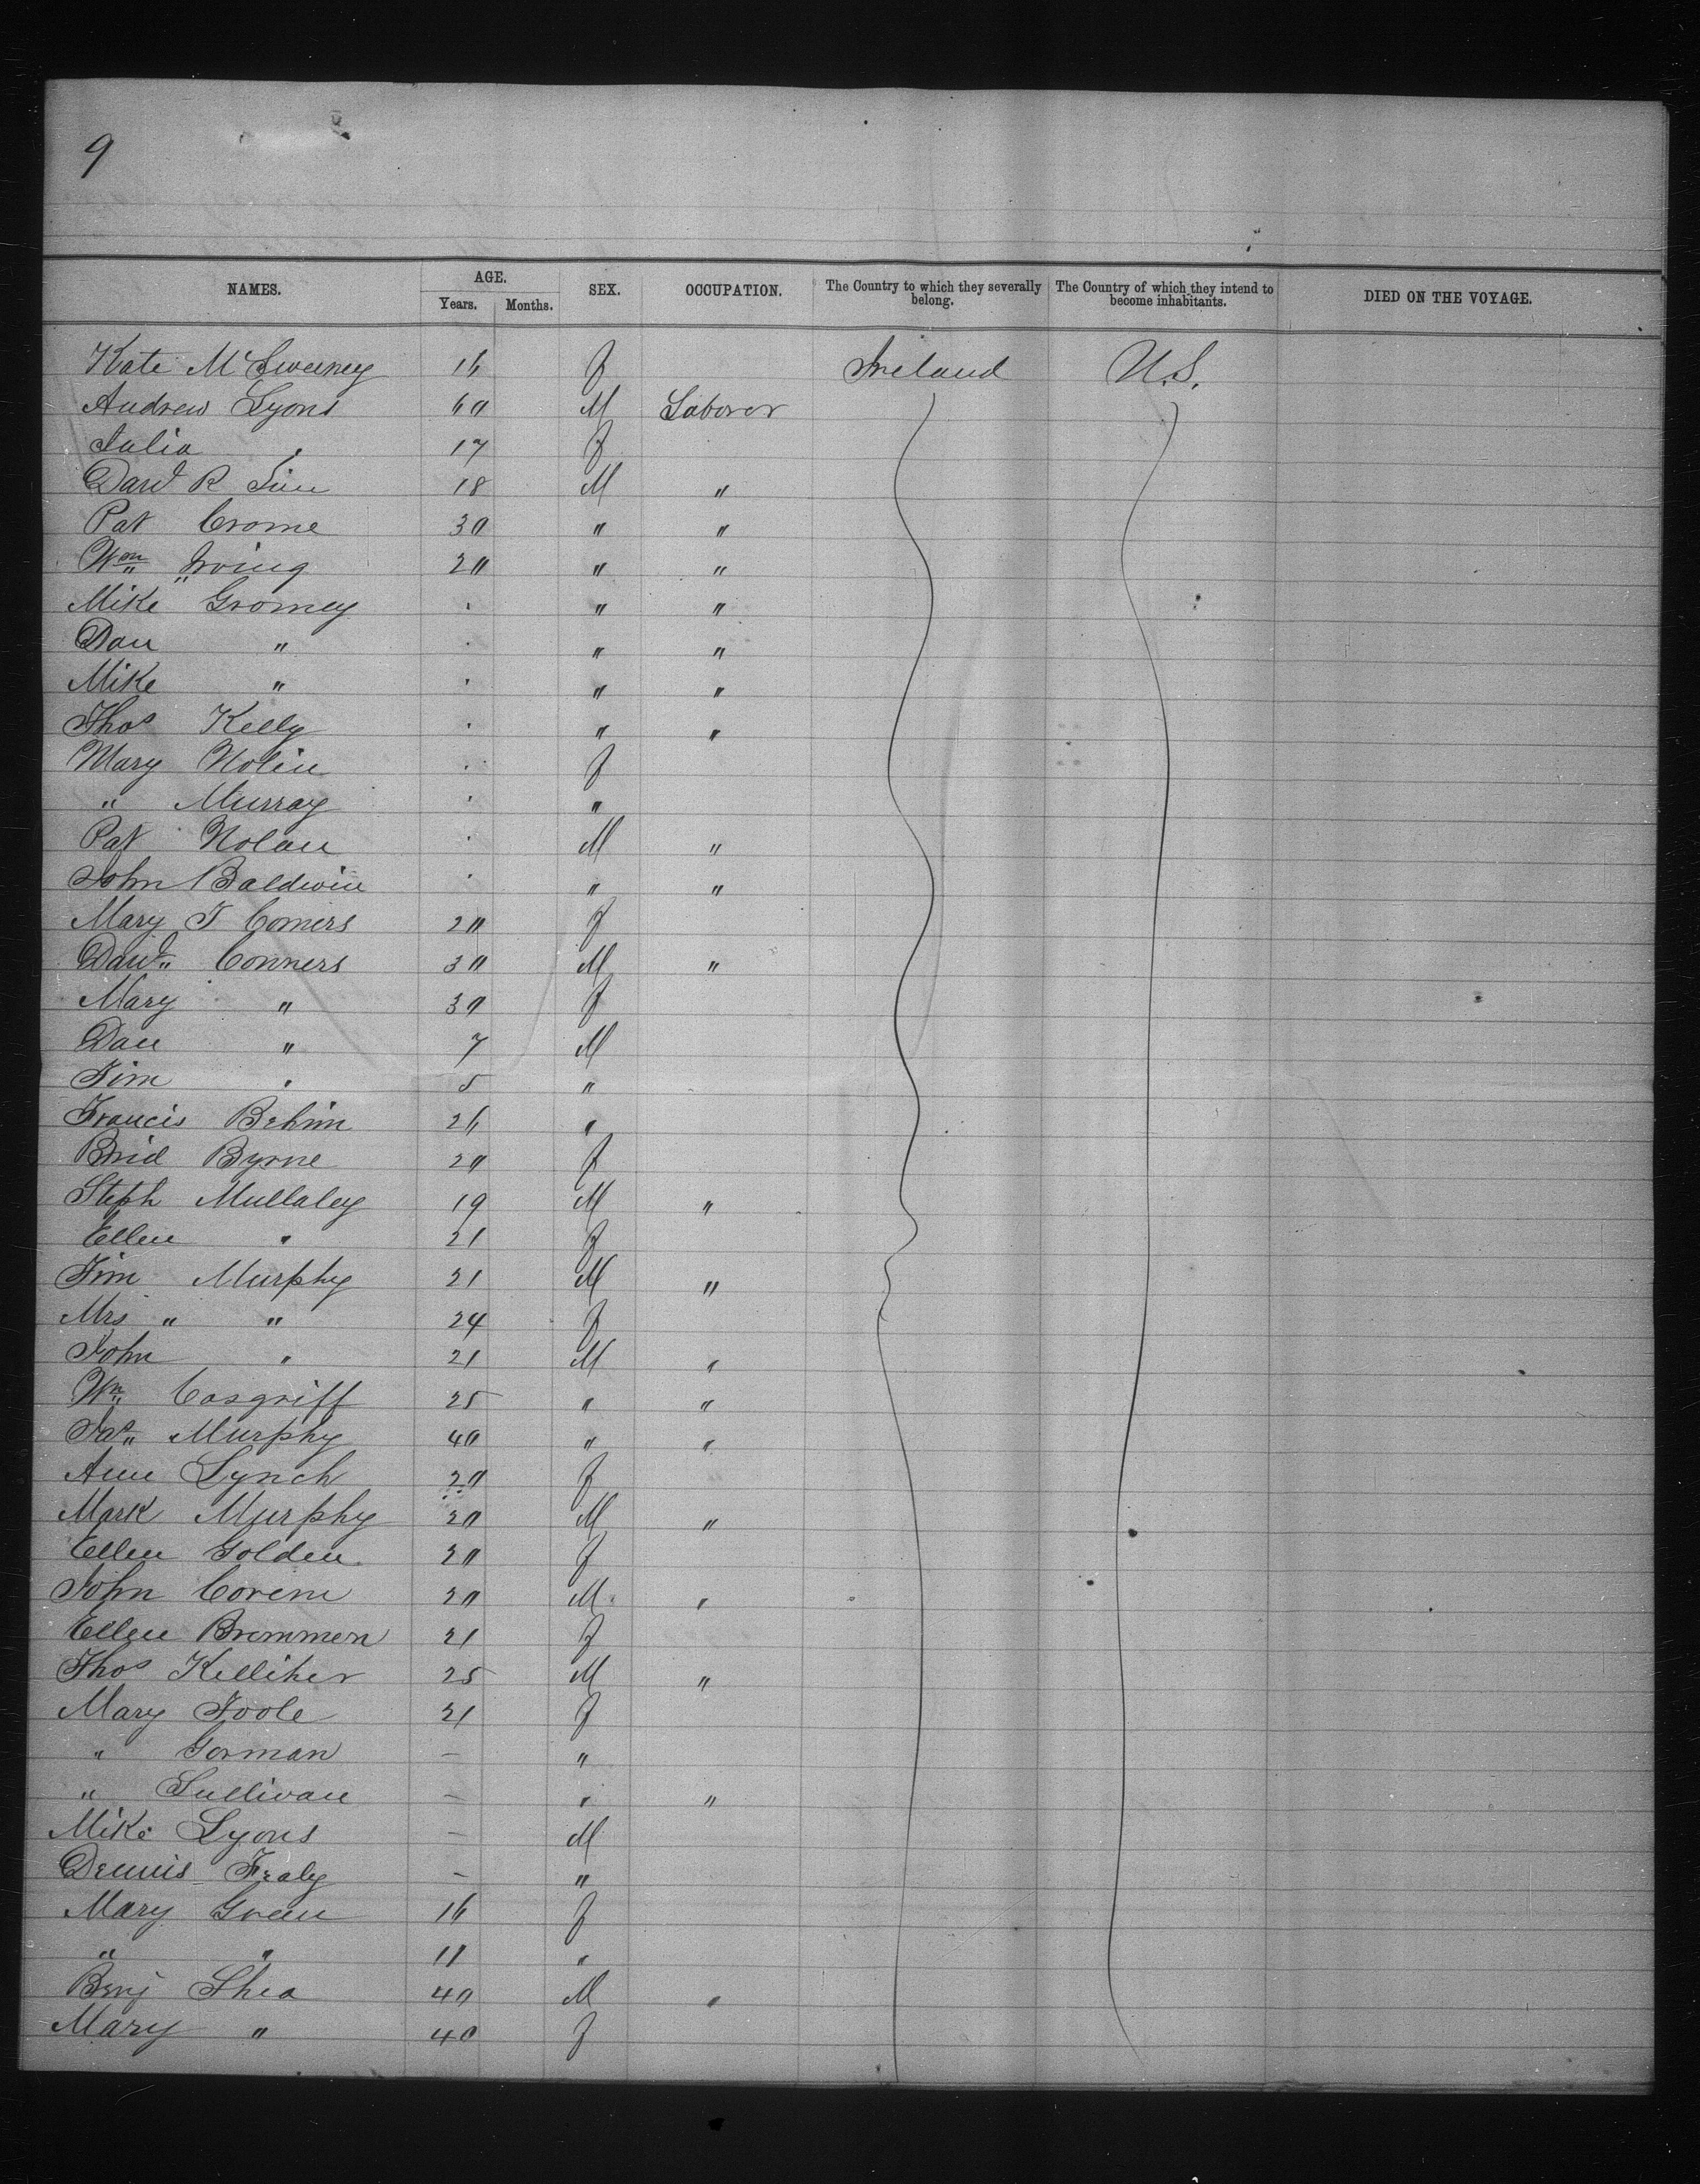 9
NAMES. AGE. SEX. OCCUPATION. The Country to which they severally belong. The Country of which they intend to become inhabitants. DIED ON THE VOYAGE.
Years. Months.
Kate McSweeney 16 f Ireland U.S.
Andrew Lyons 60 M Laborer
Julia " 17 f
Davd R 18 M "
Pat Crome 30 " "
Wm Irving 20 " "
Mike Gromey . " "
Dan " . " "
Mike " . " "
Thos Kelly . " "
Mary Nolin . f
" Murray . "
Pat Nolan . M "
John Baldwin . " "
Mary T Comers 20 f
Davd Conners 30 M "
Mary " 30 f
Dan " 7 M
Tim " 5 "
Francis Behim 26 "
Brid Byrne 20 f
Steph Mullaley 19 M "
Ellen " 21 f
Tim Murphy 21 M "
Mrs " " 24 f
John " 21 M "
Wm Cosgriff 25 " "
Jas Murphy 40 " "
Ann Lynch 20 f
Mark Murphy 20 M "
Ellen Golden 20 f
John 20 M "
Ellen Brommen 21 f
Thos Kelliher 25 M "
Mary Toole 21 f
" Gorman — "
" Sullivan — " "
Mike Lyons — M
Dennis Fealy — "
Mary Green 16 f
" " 11 "
Benj Shea 40 M "
Mary " 40 f